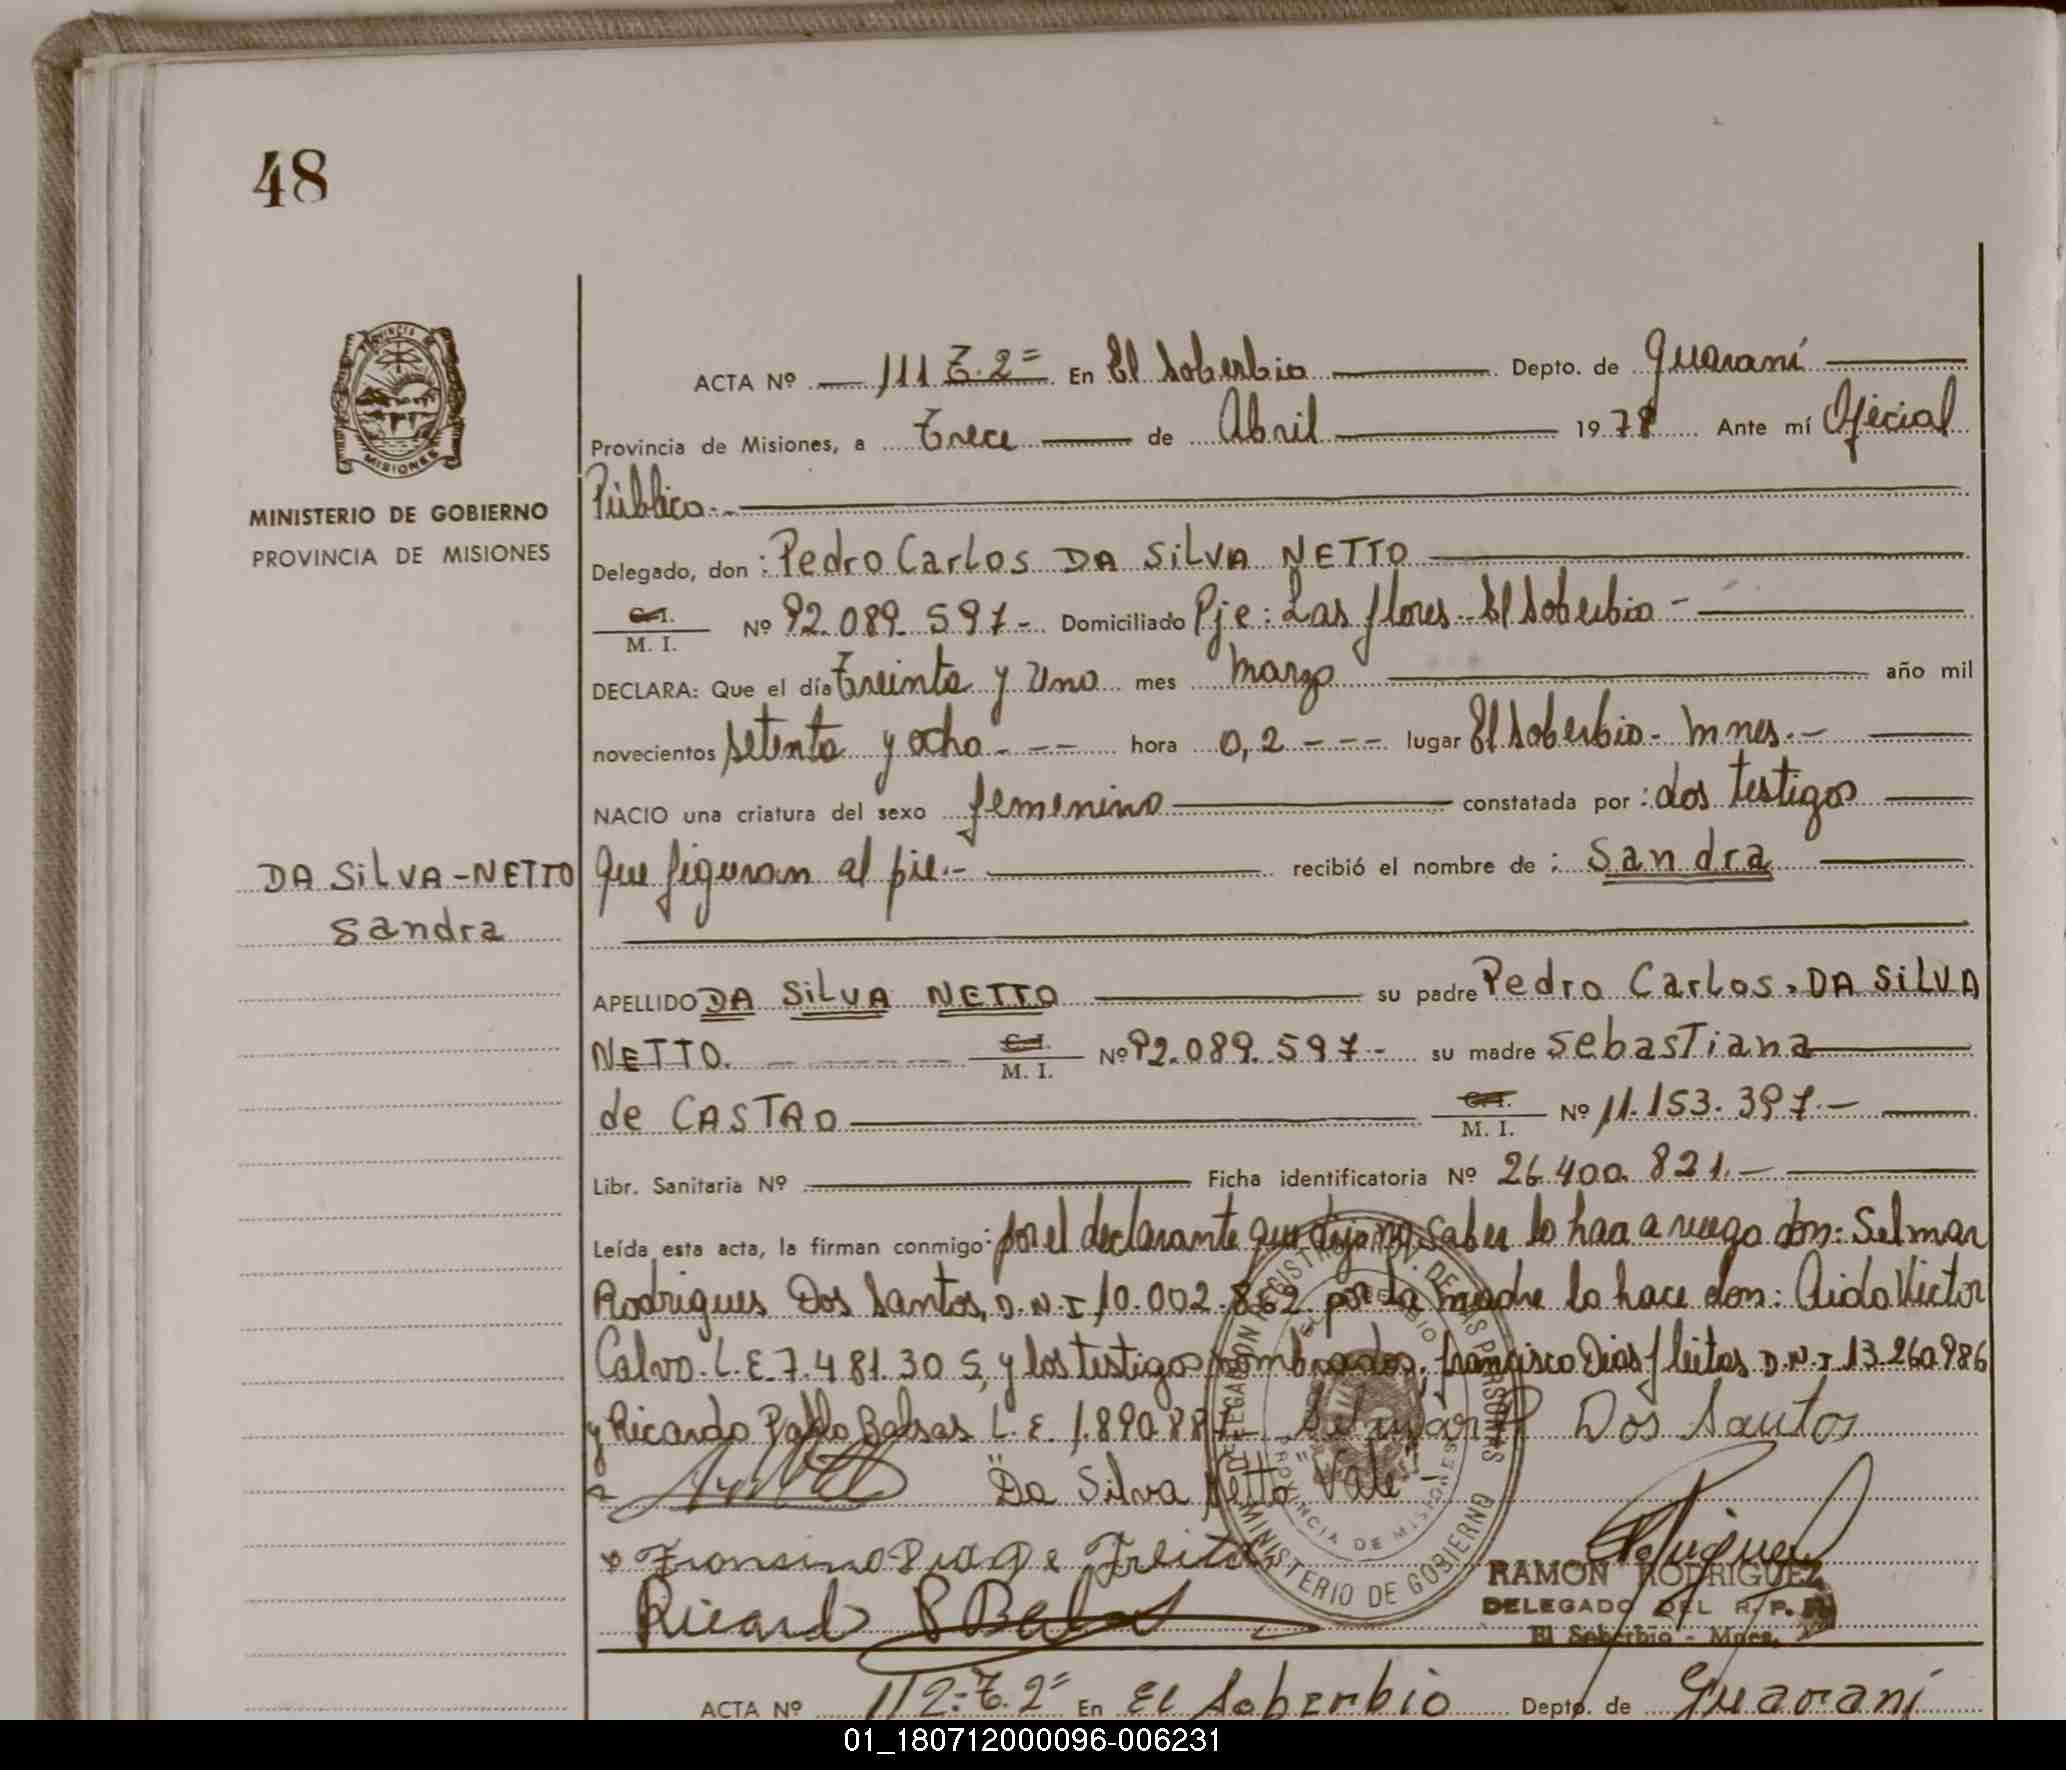 48
PROVINCIA DE
MISIONES
MINISTERIO DE GOBIERNO
PROVINCIA DE MISIONES
ACTA Nº 111 T. 2= En El Soberbio Depto. de Guaraní
Provincia de Misiones, a Trece de Abril 1978 Ante mí Oficial
Público.-
Delegado, don : Pedro Carlos DA SiLVA NETTO
C.I.
M. I. Nº 92.089.597- Domiciliado Pje: Las flores - El Soberbio -
DECLARA: Que el día Treinta y Uno mes Marzo año mil
novecientos setenta y ocho - -- hora 0,2 --- lugar El Soberbio - Mnes.-
NACIO una criatura del sexo femenino constatada por : dos testigos
DA SiLVA-NETTO
Sandra
que figuran al pie.- recibió el nombre de : Sandra
APELLIDO DA SiLVA NETTO su padre Pedro Carlos, DA SiLVA
NETTO. C.I. M. I. Nº 92.089.597- su madre SebasTiana
de CASTRO C.I. M. I. Nº 11.153.397.-
Libr. Sanitaria Nº Ficha identificatoria Nº 26.400.821.-
Leída esta acta, la firman conmigo: por el declarante que dijo no saber lo hara a ruego don: Selmar
Rodrigues Dos Santos, D.N.I 10.002.862 por la madre lo hace don: Aido Victor
Calvo. L.E. 7.481.305, y los testigos nombrados; francisco Dias fleitas D.N.I 13.260.986
y Ricardo Pablo Balsas L.E. 1.890.887- Selmar R Dos Santos
"Da Silva Netto" Vale
Freita
Ricardo P Balsas
DELEGACION REGISTRO DE LAS PERSONAS
EL SOBERBIO
PROVINCIA DE MISIONES
MINISTERIO DE GOBIERNO
RAMON RODRIGUEZ
DELEGADO DEL R. P. P.
El Soberbio - Mnes.
ACTA Nº 112-T. 2= En El Soberbio Depto. de Guaraní
01_180712000096-006231